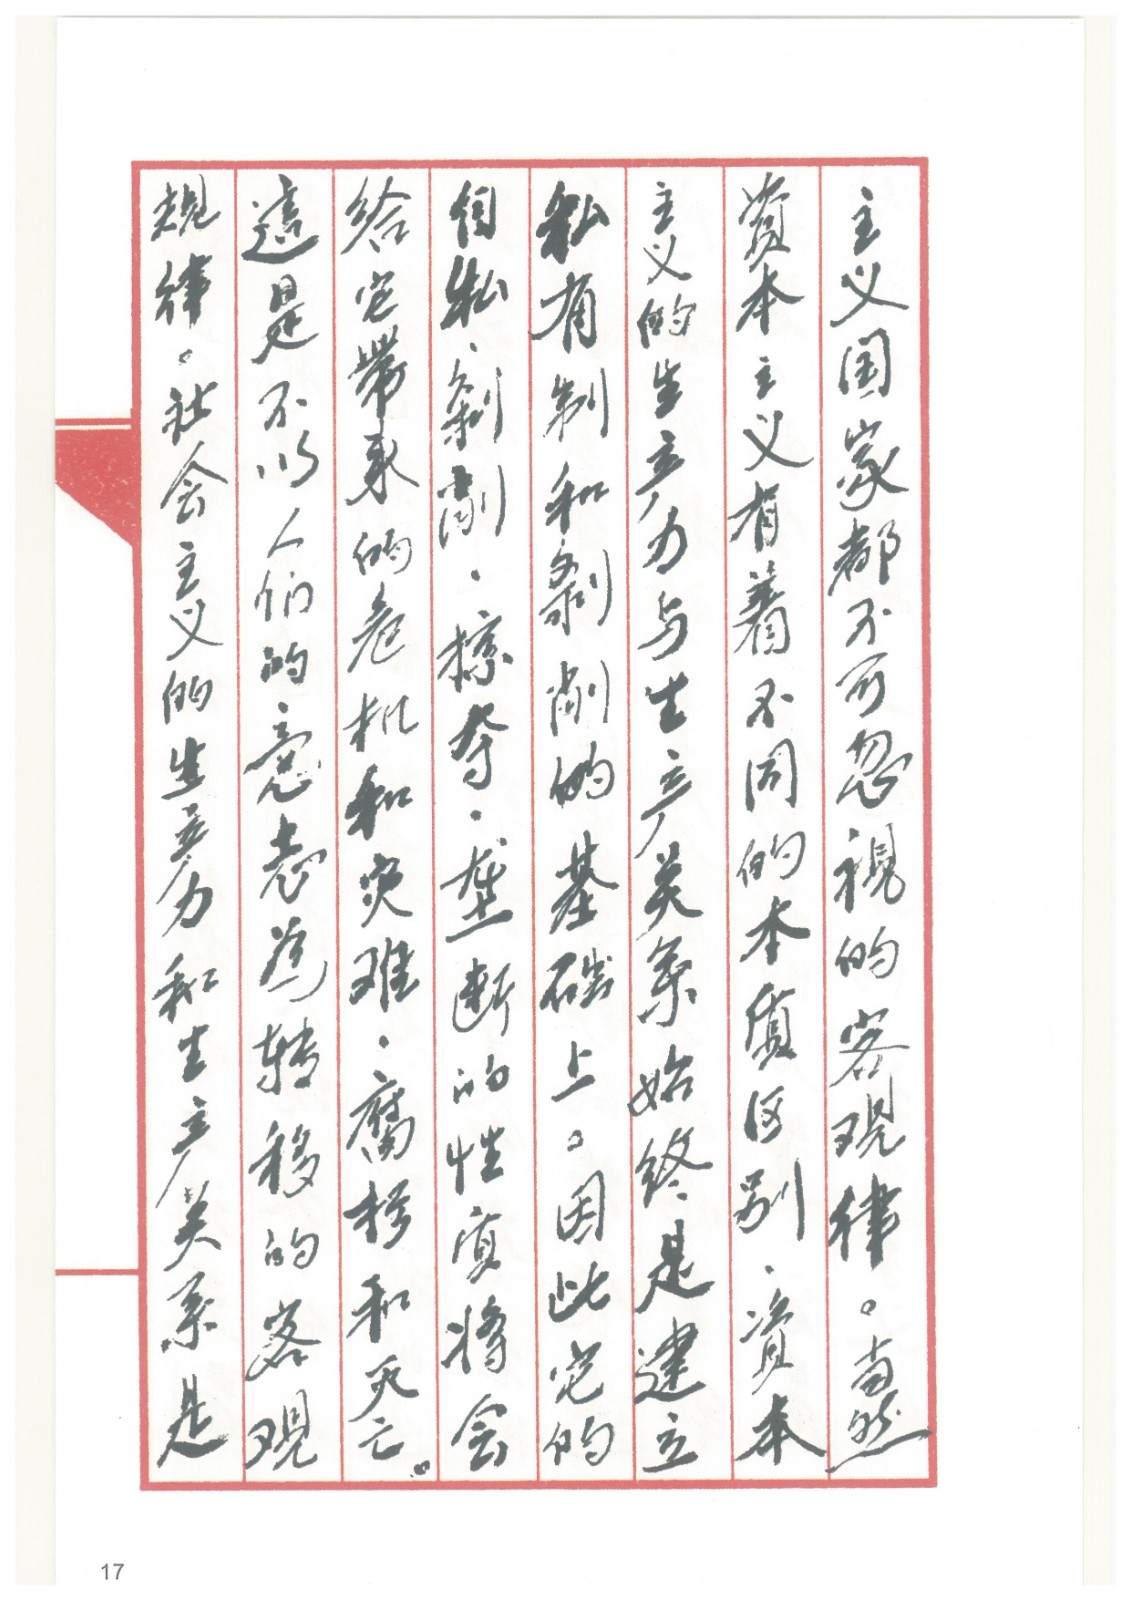 主义国家都不可忽視的客观律。当然
資本主义有着不同的本质区别、資本
主义的生产力与生产关系始终是建立
私有制和剝削的基础上。因此它的
自私、剝削、掠夺、垄断的性质将会
给它带来的危机和灾难、腐朽和死亡。
這是不以人们的意志为转移的客观
規律。社会主义的生产力和生产关系是
17